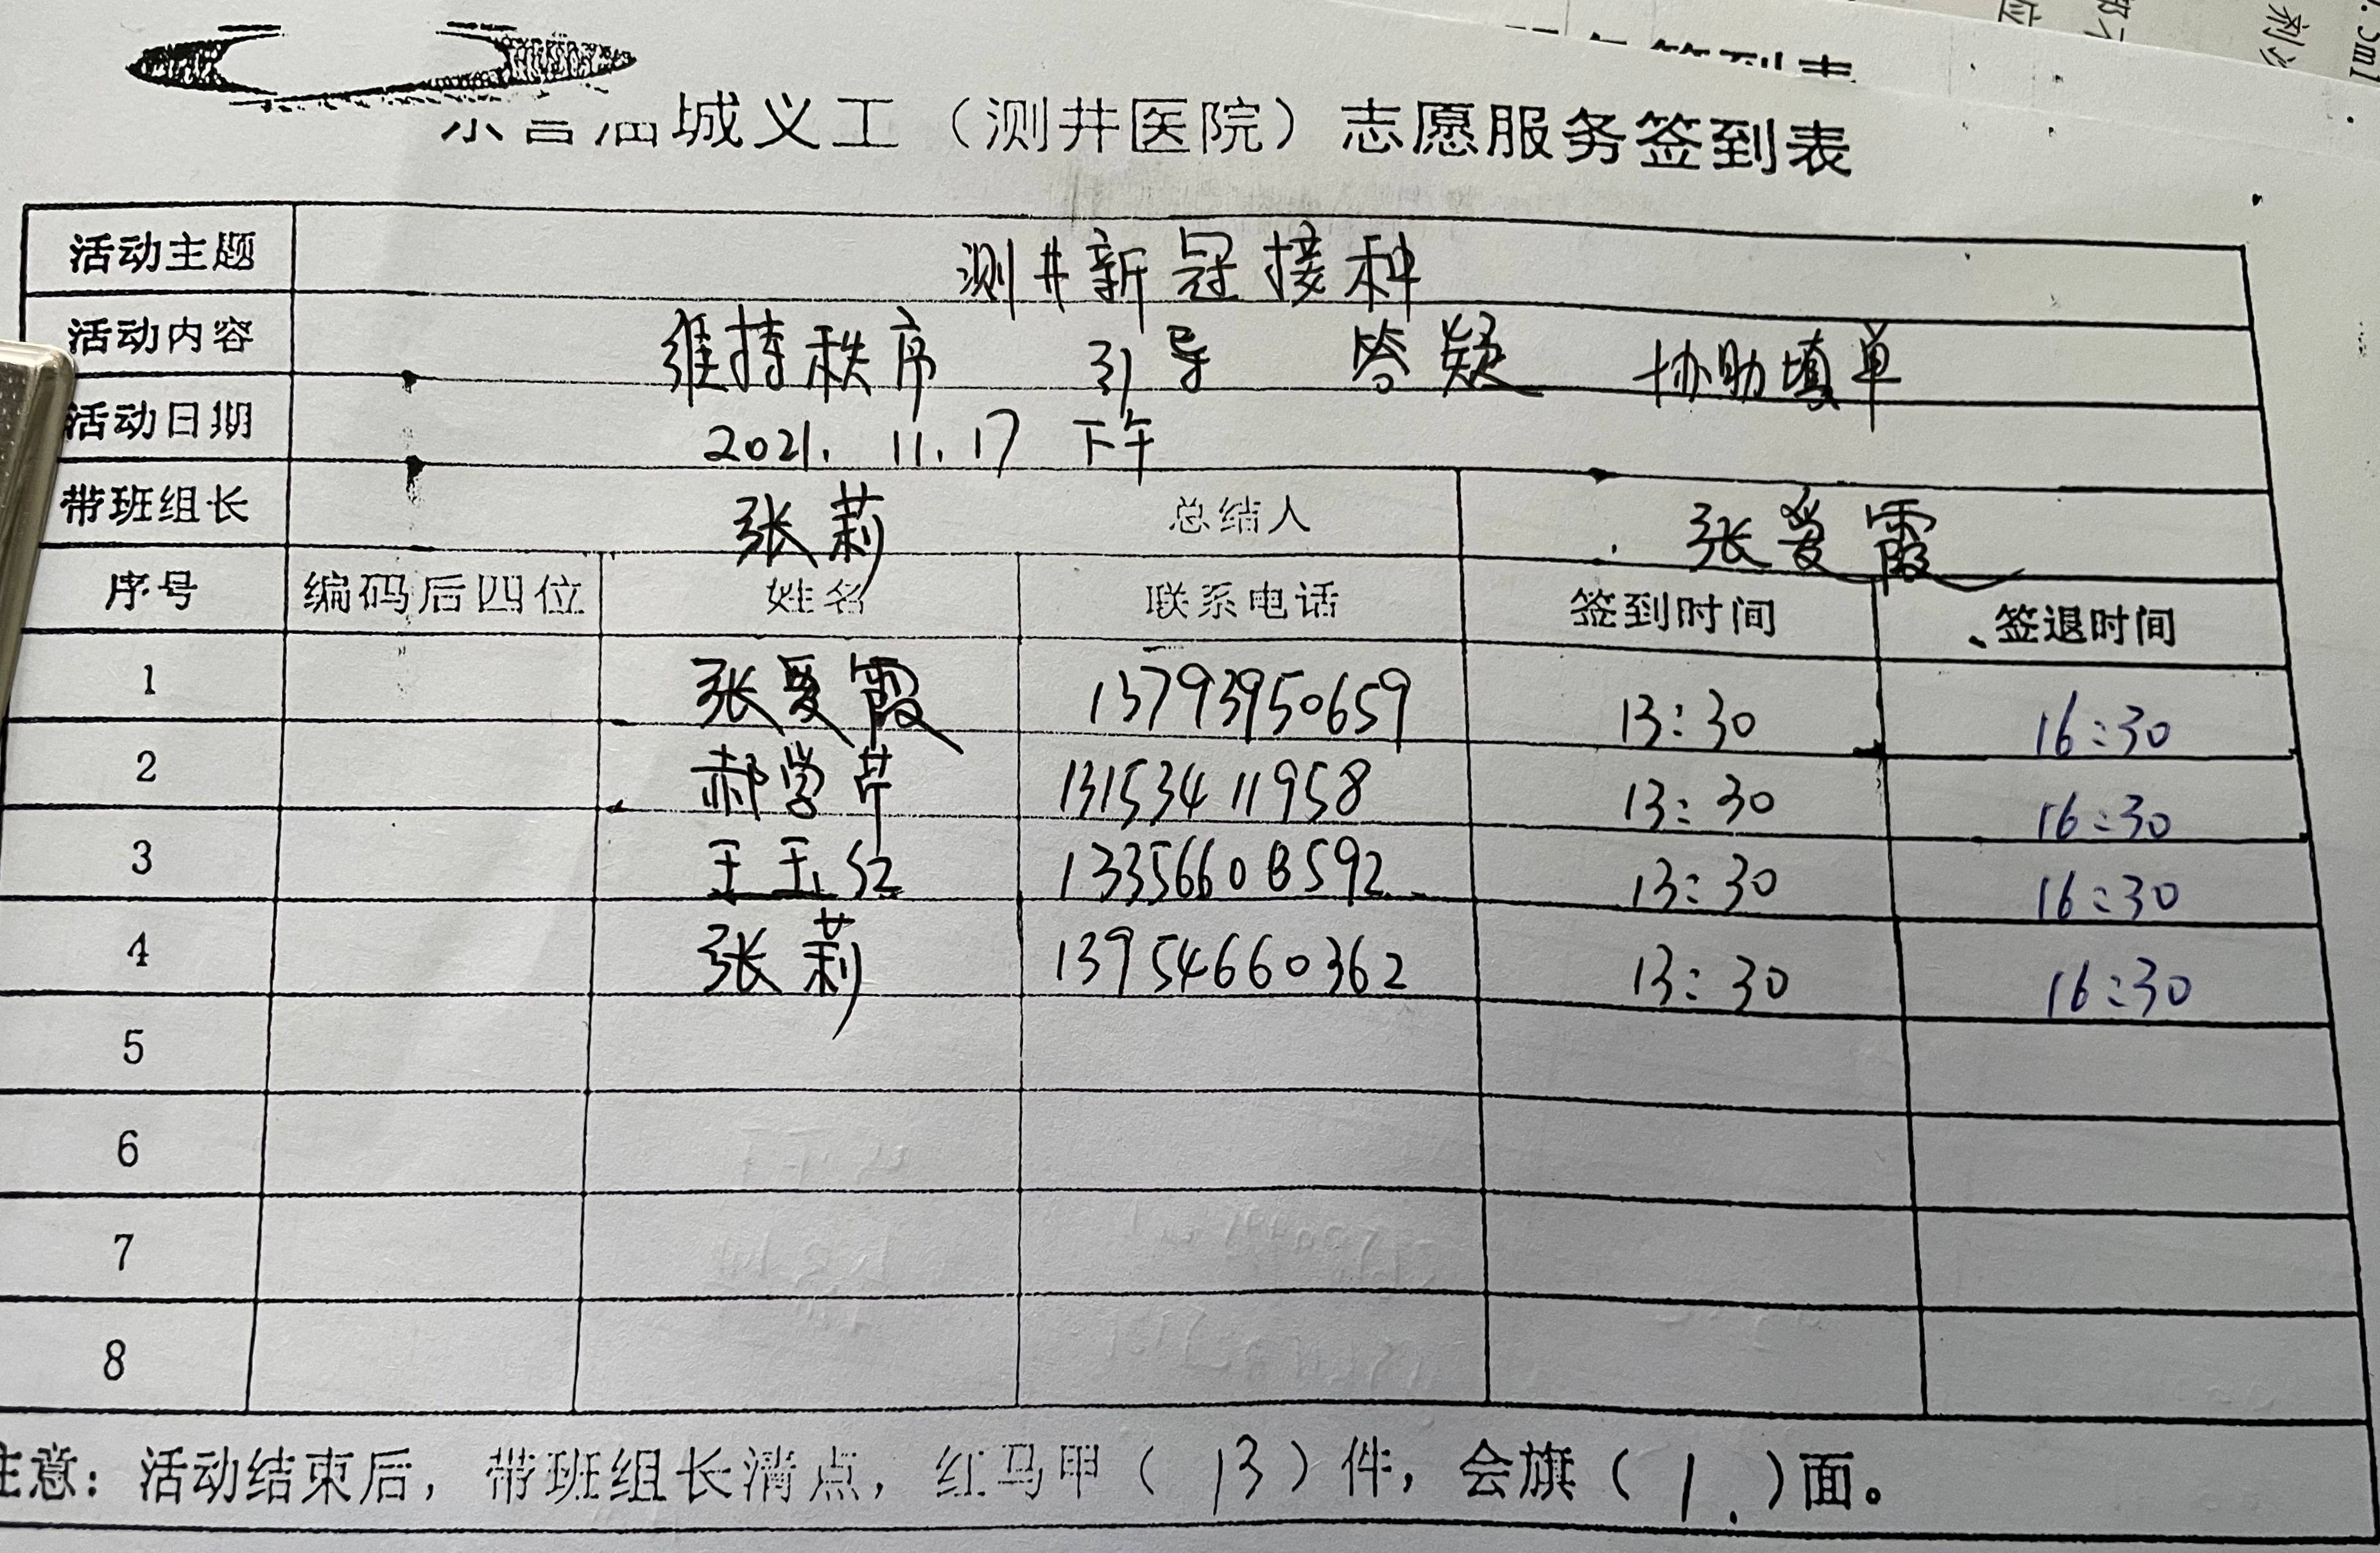 城义工（测井医院）志愿服务签到表
活动主题 测井新冠接种
活动内容 维持秩序 引导 答疑 协助填单
活动日期 2021. 11. 17 下午
带班组长 张莉 总结人 张爱霞
序号 编码后四位 姓名 联系电话 签到时间 签退时间
1 张爱霞 13793950659 13:30 16:30
2 郝学芹 13153411958 13:30 16:30
3 王玉红 13356608592 13:30 16:30
4 张莉 13954660362 13:30 16:30
5
6
7
8
注意：活动结束后，带班组长清点，红马甲（13）件，会旗（1.）面。